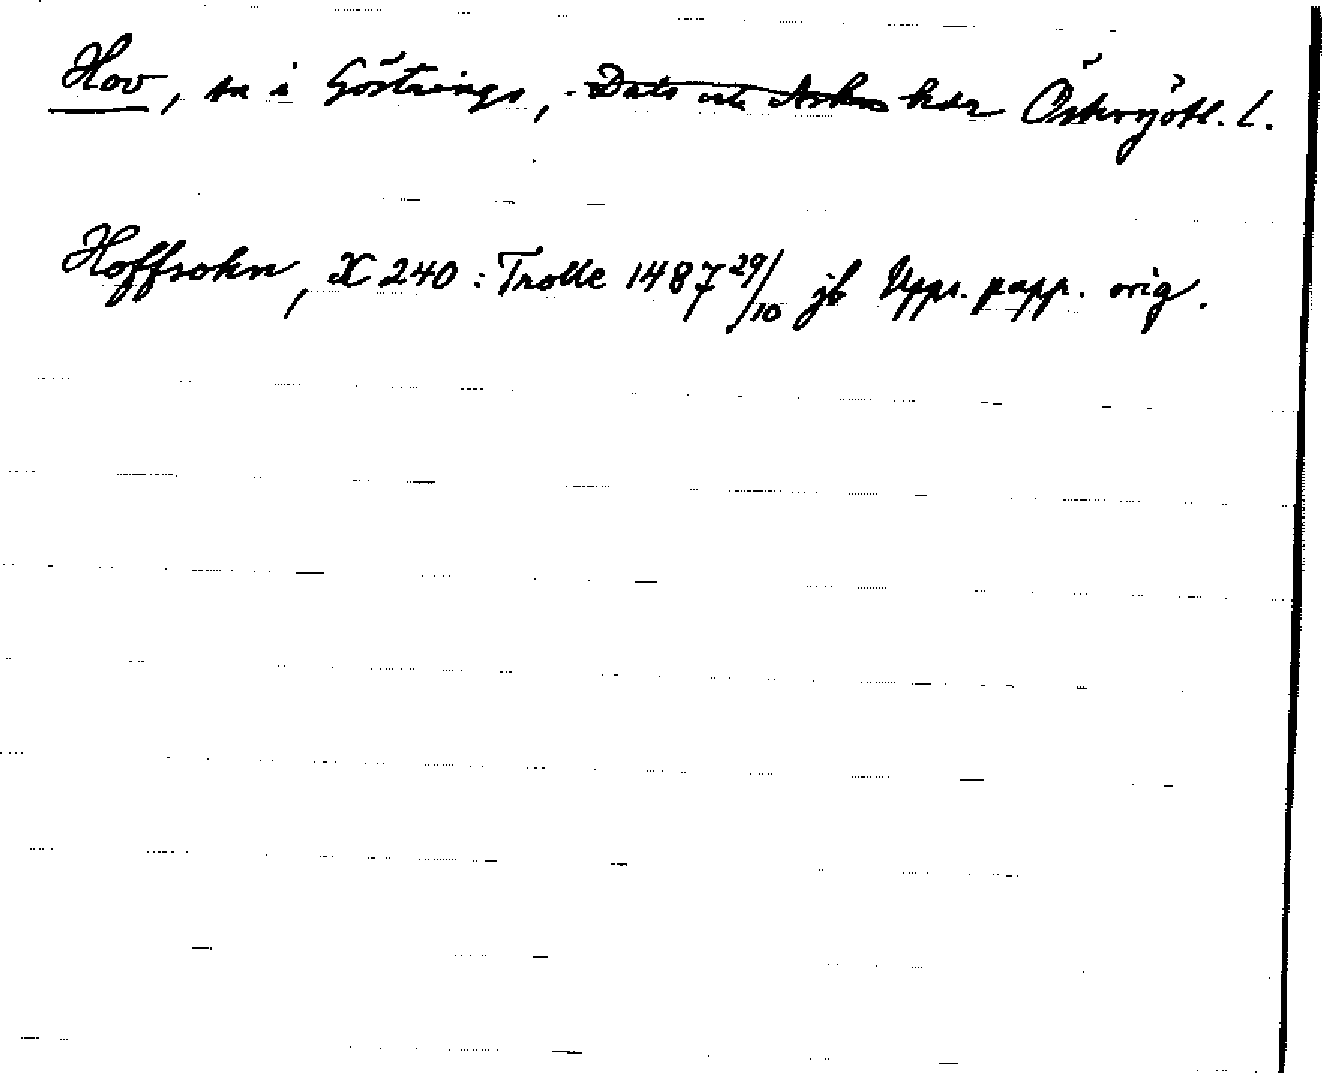 Hov, sn i Göstrings, Dals och Askers hdr Östergötl. l.
Hoffsokn, X 240 : Trolle 1487 29/10 jb Upps. papp. orig.